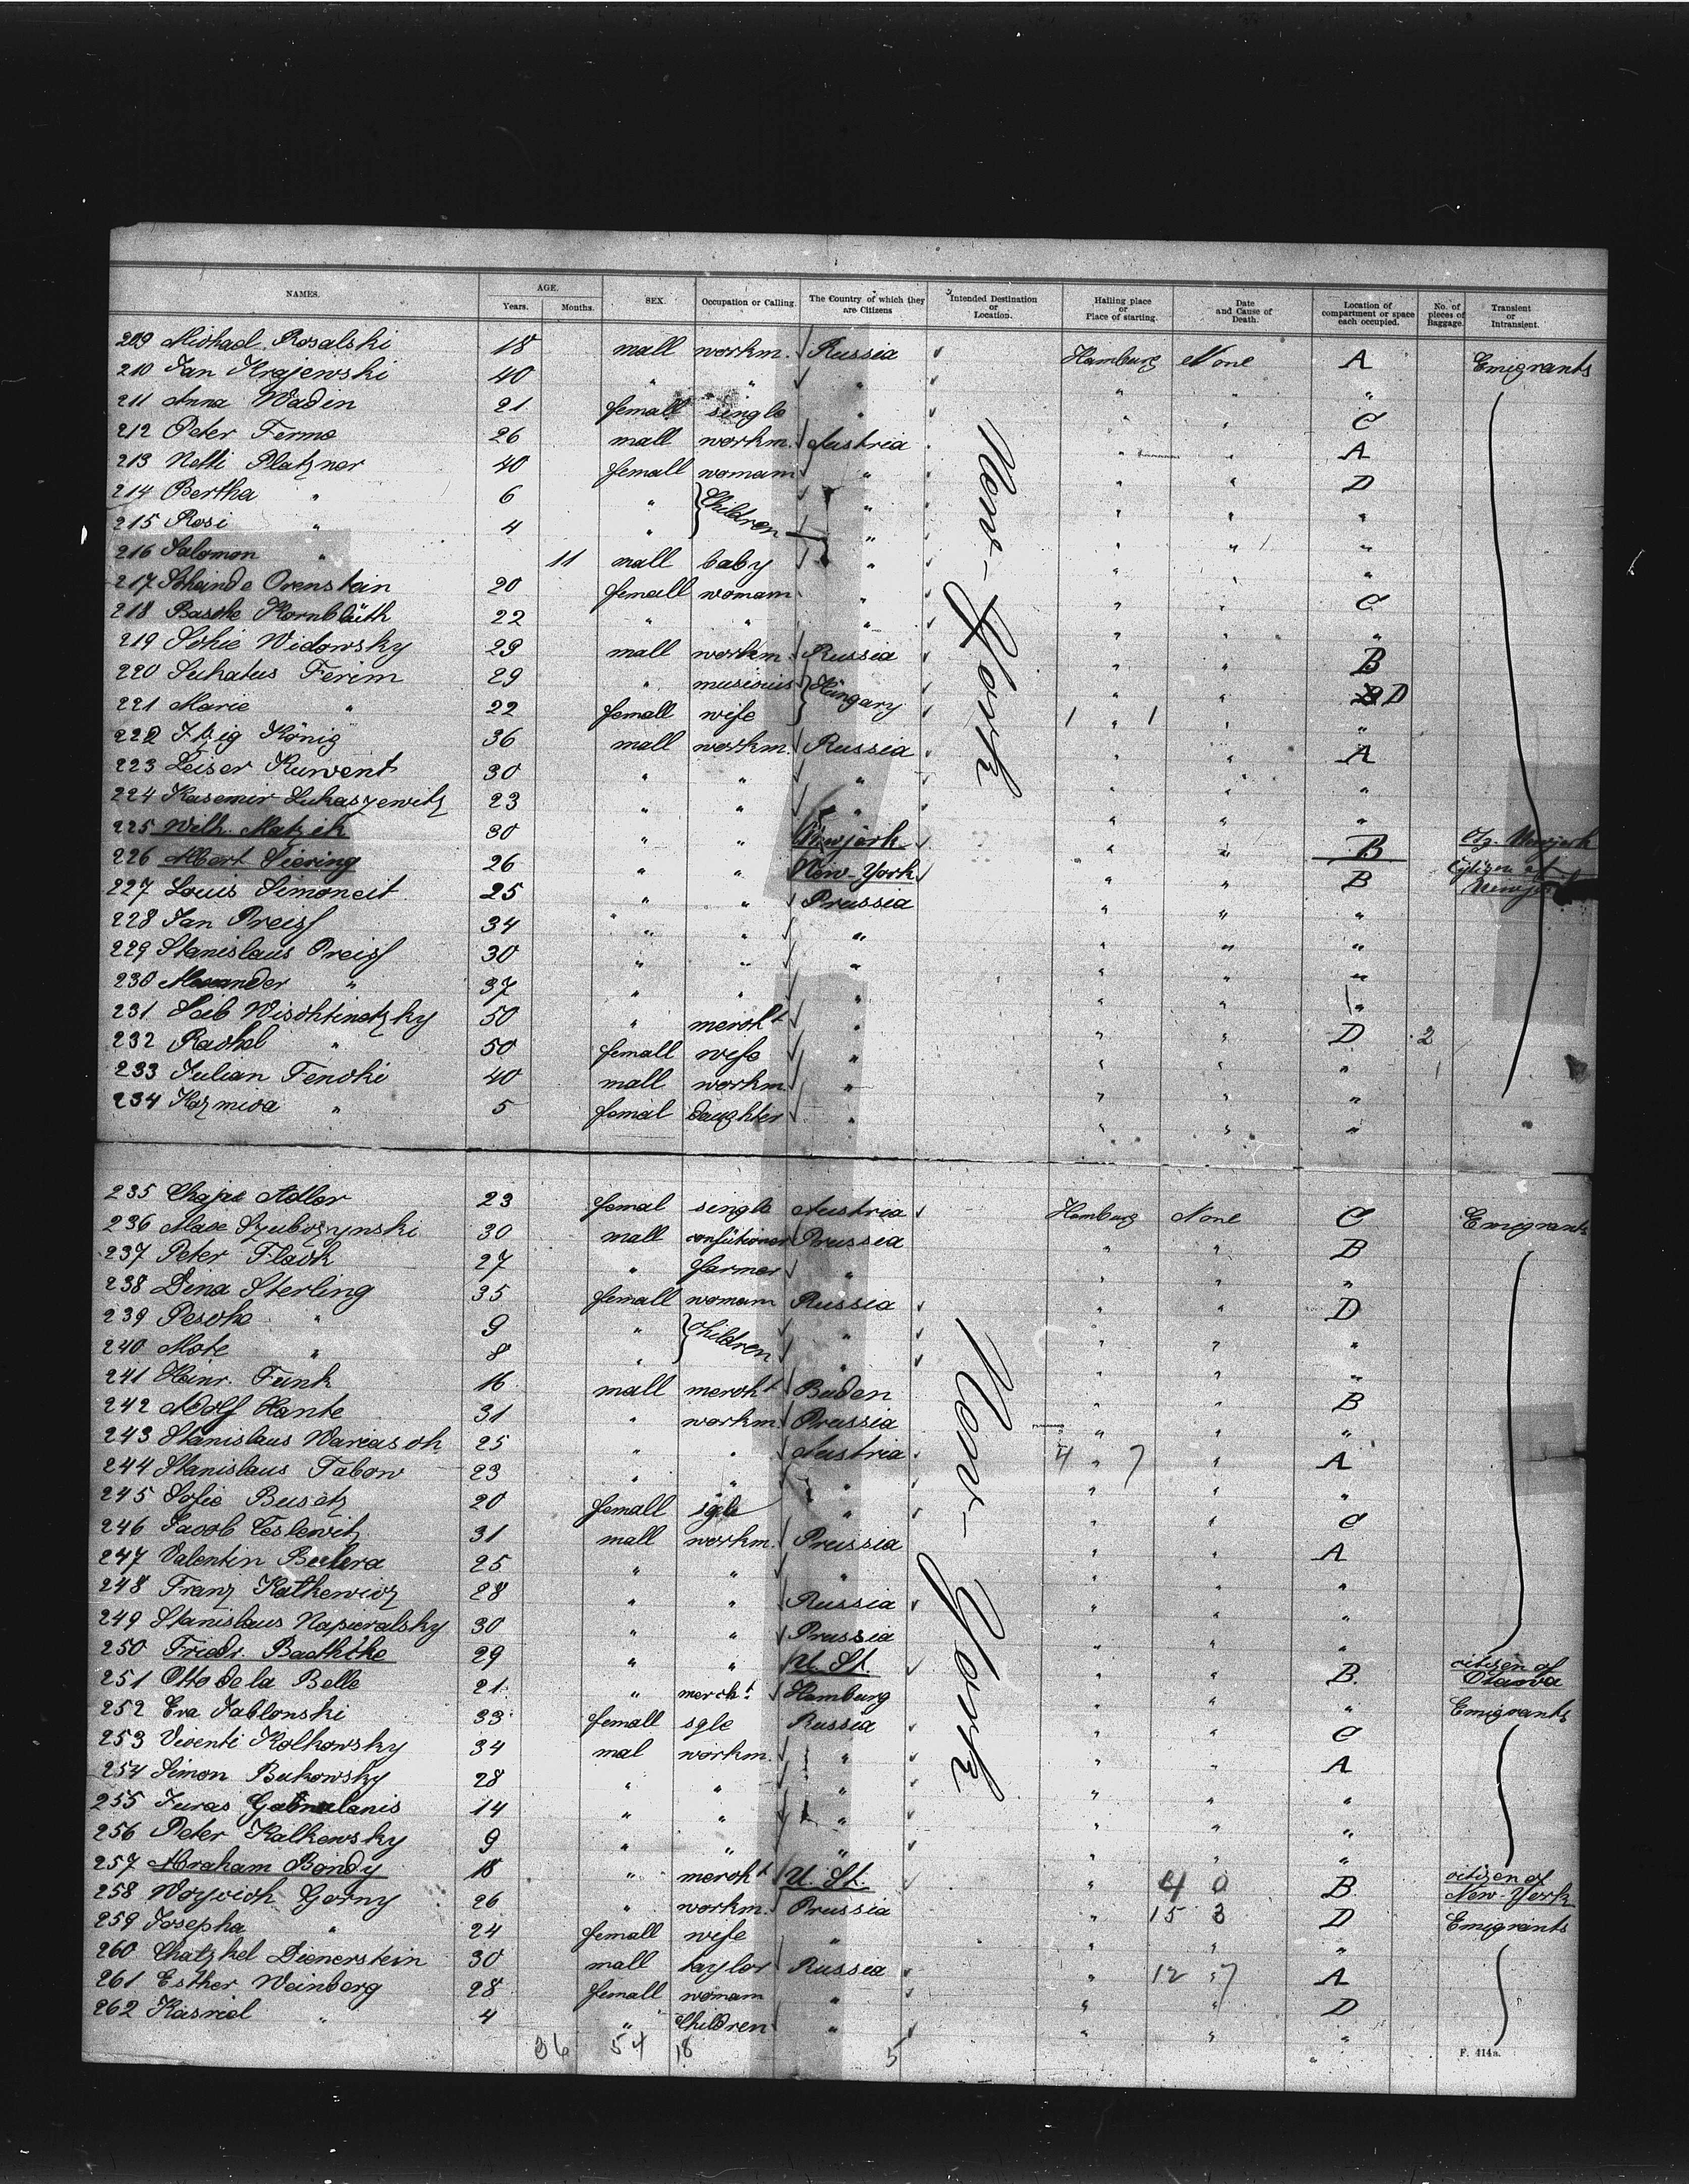 NAMES. AGE. Years. Months. SEX. Occupation or Calling. The Country of which they are Citizens Intended Destination or Location. Hailing place or Place of starting. Date and Cause of Death. Location of compartment or space each occupied. No. of pieces of Baggage. Transient or Intransient.
209 Michael Rosalski 18 mall workm. Russia Hamburg None A Emigrants
210 Jan Krajewski 40 " " " " " "
211 Anna Wadin 21 femall single " " " C
212 Peter Fermo 26 mall workm. Austria " " A
213 Netti Platzner 40 femall womam " " " D
214 Bertha " 6 " Children " " " "
215 Rosi " 4 " " " " "
216 Salomon " 11 mall baby " " " "
217 Scheinde Orenstein 20 femall womam " " " C
218 Basche Kornblüth 22 " " " " " "
219 Sohie Widowsky 29 mall workm. Russia " " B
220 Suhatus Ferim 29 " musicuis Hungary " " D
221 Marie " 22 femall wife 1 " 1 " "
222 Itzig König 36 mall workm. Russia " " A
223 Leiser Kurvent 30 " " " " " "
224 Kasemir Lukaszewitz 23 " " " " " "
225 Wilh. Matzik 30 " " Newjork " " B Ctz. Newjork
226 Albert Siering 26 " " New-York " " B Cytizen of
227 Louis Simoneit 25 " " Prussia " " "
228 Jan Preiss 34 " " " " " "
229 Stanislaus Preiss 30 " " " " " "
230 Alexander " 37 " " " " " "
231 Leib Wischtinetzky 50 " mercht " " " D 2
232 Rachel " 50 femall wife " " " "
233 Julian Fenski 40 mall workm. " " " "
234 Kazmira " 5 femal daughter " " " "
New-York
235 Chaje Adler 23 femal single Austria Hamburg None C Emigrants
236 Maee Szubozynski 30 mall confitioner Prussia " " B
237 Peter Flach 27 " farmer " " " "
238 Dina Sterling 35 femall womam Russia " " D
239 Pesche " 9 " Children " " " "
240 Mote " 8 " " " " "
241 Heinr. Funk 16 mall mercht Baden " " B
242 Adolf Hante 31 " workm. Prussia " " "
243 Stanislaus Wariasch 25 " " Austria 4 " 7 " A
244 Stanislaus Tabow 23 " " " " " "
245 Sofie Busatz 20 femall sgle " " " C
246 Jacob Ceslewitz 31 mall workm. Prussia " " A
247 Valentin Beelera 25 " " " " " "
248 Franz Katkewicz 28 " " Russia " " "
249 Stanislaus Napieralsky 30 " " Prussia " " "
250 Friedr. Baethke 29 " " U. St. " " B. citizen of
251 Otto de la Belle 21 " mercht. Hamburg " " " Emigrants
252 Eva Jablonski 33 femall sgle Russia " " C
253 Vicenti Kolkowsky 34 mal workm. " " " A
254 Simon Bukowsky 28 " " " " " "
255 Juras 14 " " " " " "
256 Peter Kalkewsky 9 " " " " " "
257 Abraham Bondy 18 " mercht U. St. " 4 0 B. citizen of New-York
258 Woyzich Gorny 26 " workm. Prussia " 15 3 D Emigrants
259 Josepha " 24 femall wife " " " "
260 Chatzkel Dienerstein 30 mall taylor Russia " 12 " 7 A
261 Esther Weinberg 28 femall womam " " " D
262 Kasriel " 4 " Children " " " "
New-York
36 54 18 5
F. 414a.